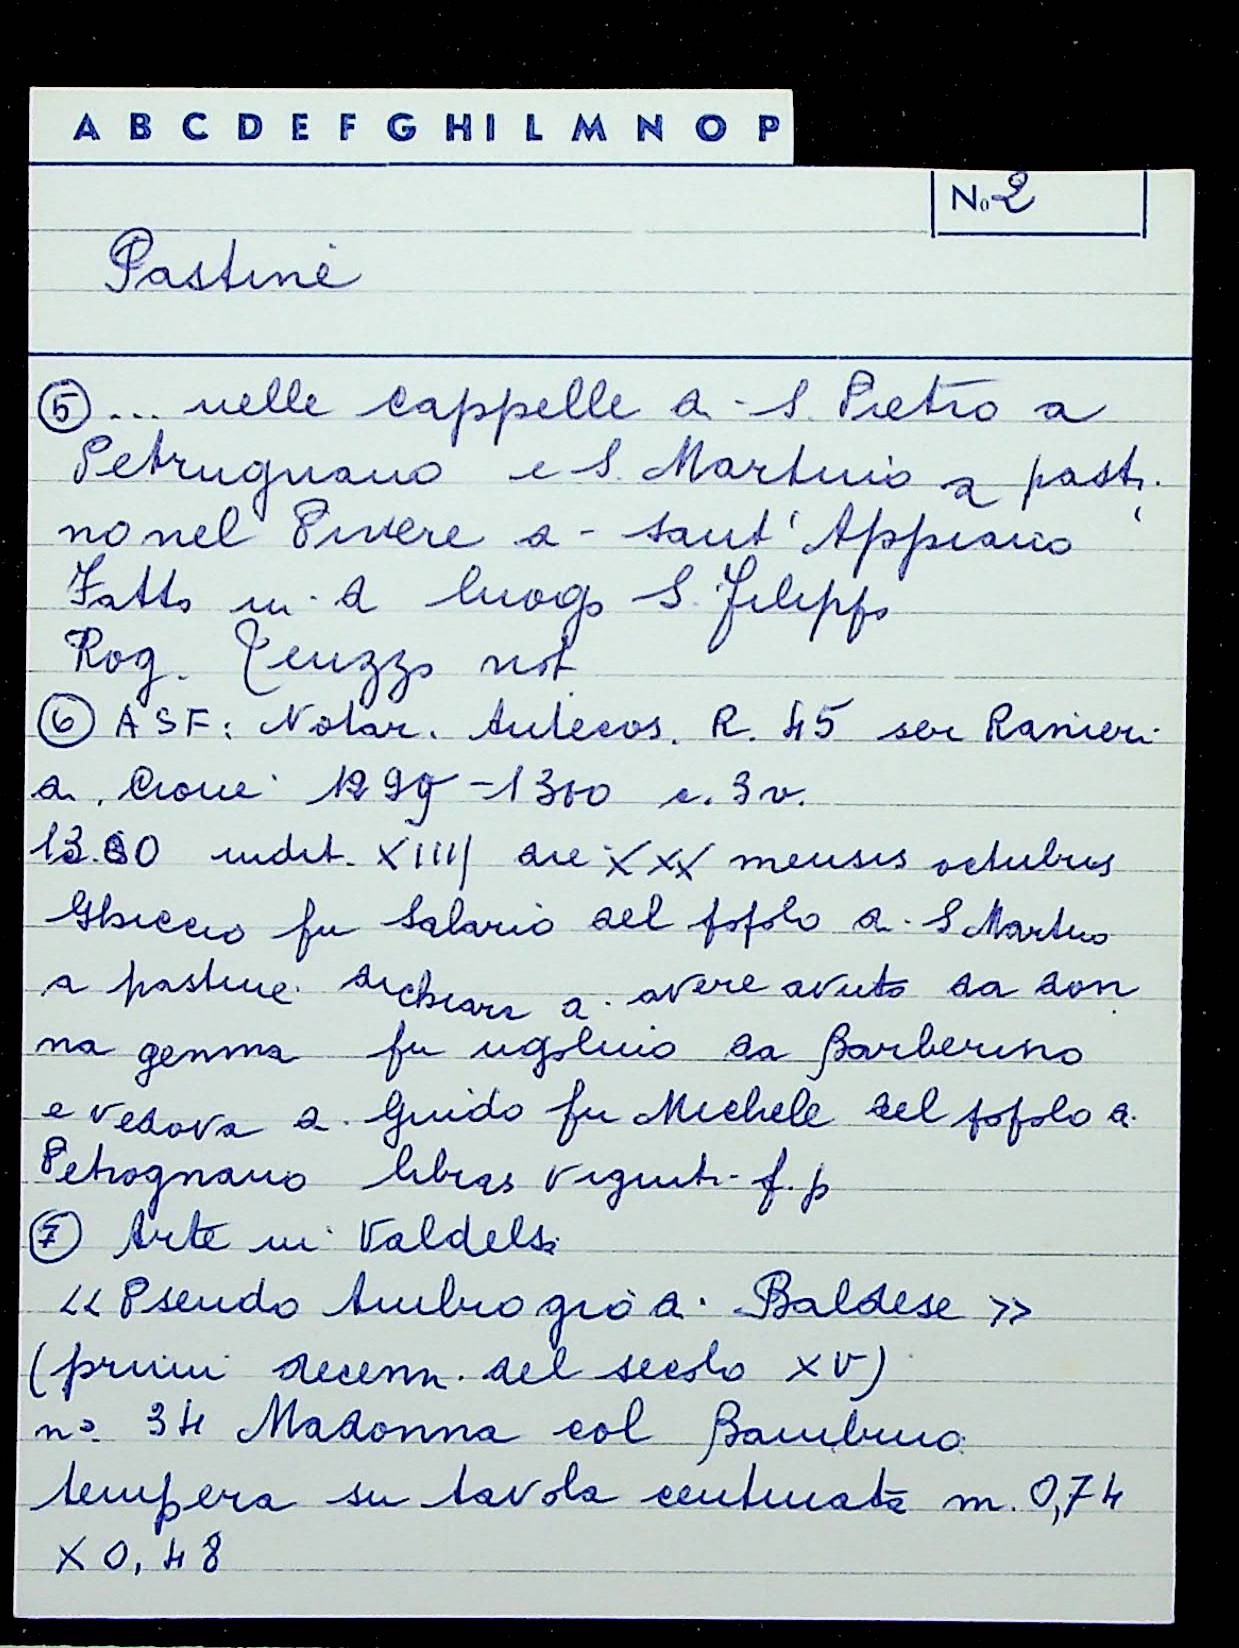 A B C D E F G H I L M N O P
No 2
Pastine
5 ... nelle cappelle di S. Pietro a
Petrugnano e S. Martino a pasti
no nel Piviere di Sant'Appiano
Fatto in d luogo S. Filippo
Rog. not
6 ASF: Notar. Antecos. R. 45 ser Ranieri
di Cione 1299-1300 c. 3v.
1300 indit. XIIII die XXX mensis octubris
Ghiccio fu Salario del popolo di S Martino
a pastine dichiara di avere avuto da don
na gemma fu ugolino da Barberino
e vedova di Guido fu Michele del popolo di
Petrognano libras viginti f.p
7 Arte in Valdelsa
<<Pseudo Ambrogio di Baldese>>
(primi decenn. del secolo XV)
no. 34 Madonna col Bambino
tempera su tavola centinata m. 0,74
x 0,48